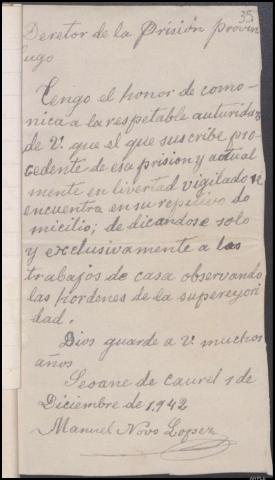 35
Deretor de la Prisión provin
lugo
Tengo el honor de como-
nicar a la respetable auturidaz
de V. que el que suscribe pro-
cedente de esa prision y actual
mente en livertad vigilado
encuentra en su repetivo do
micilio; de dicandose solo
y exclusivamente a las
trabajos de casa observando
las hordenes de la supereyori
dad.
Dios guarde a V. muchos
años
Seoane de Caurel 1 de
Diciembre de 1.942
Manuel Novo Lopez